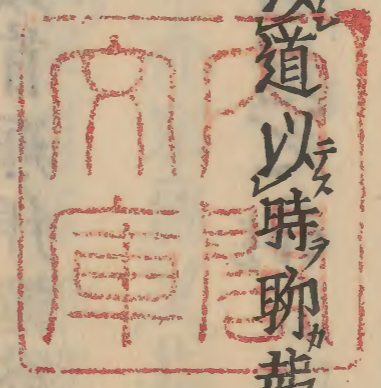 道以テス時ヲ聊カ
内閣文庫